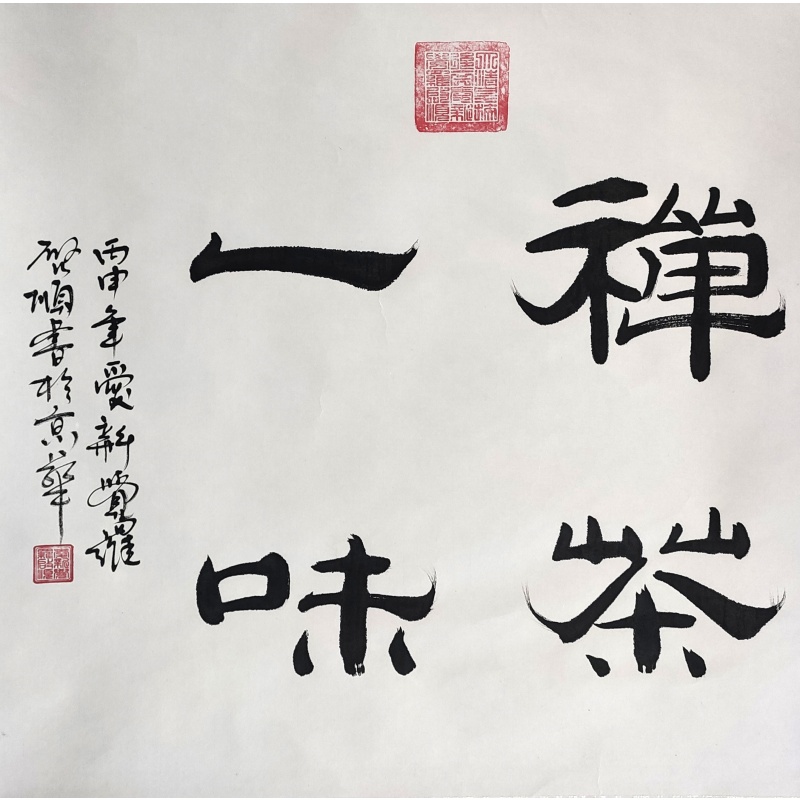 禪茶
一味
丙申年愛新覺羅
啟順書於京華